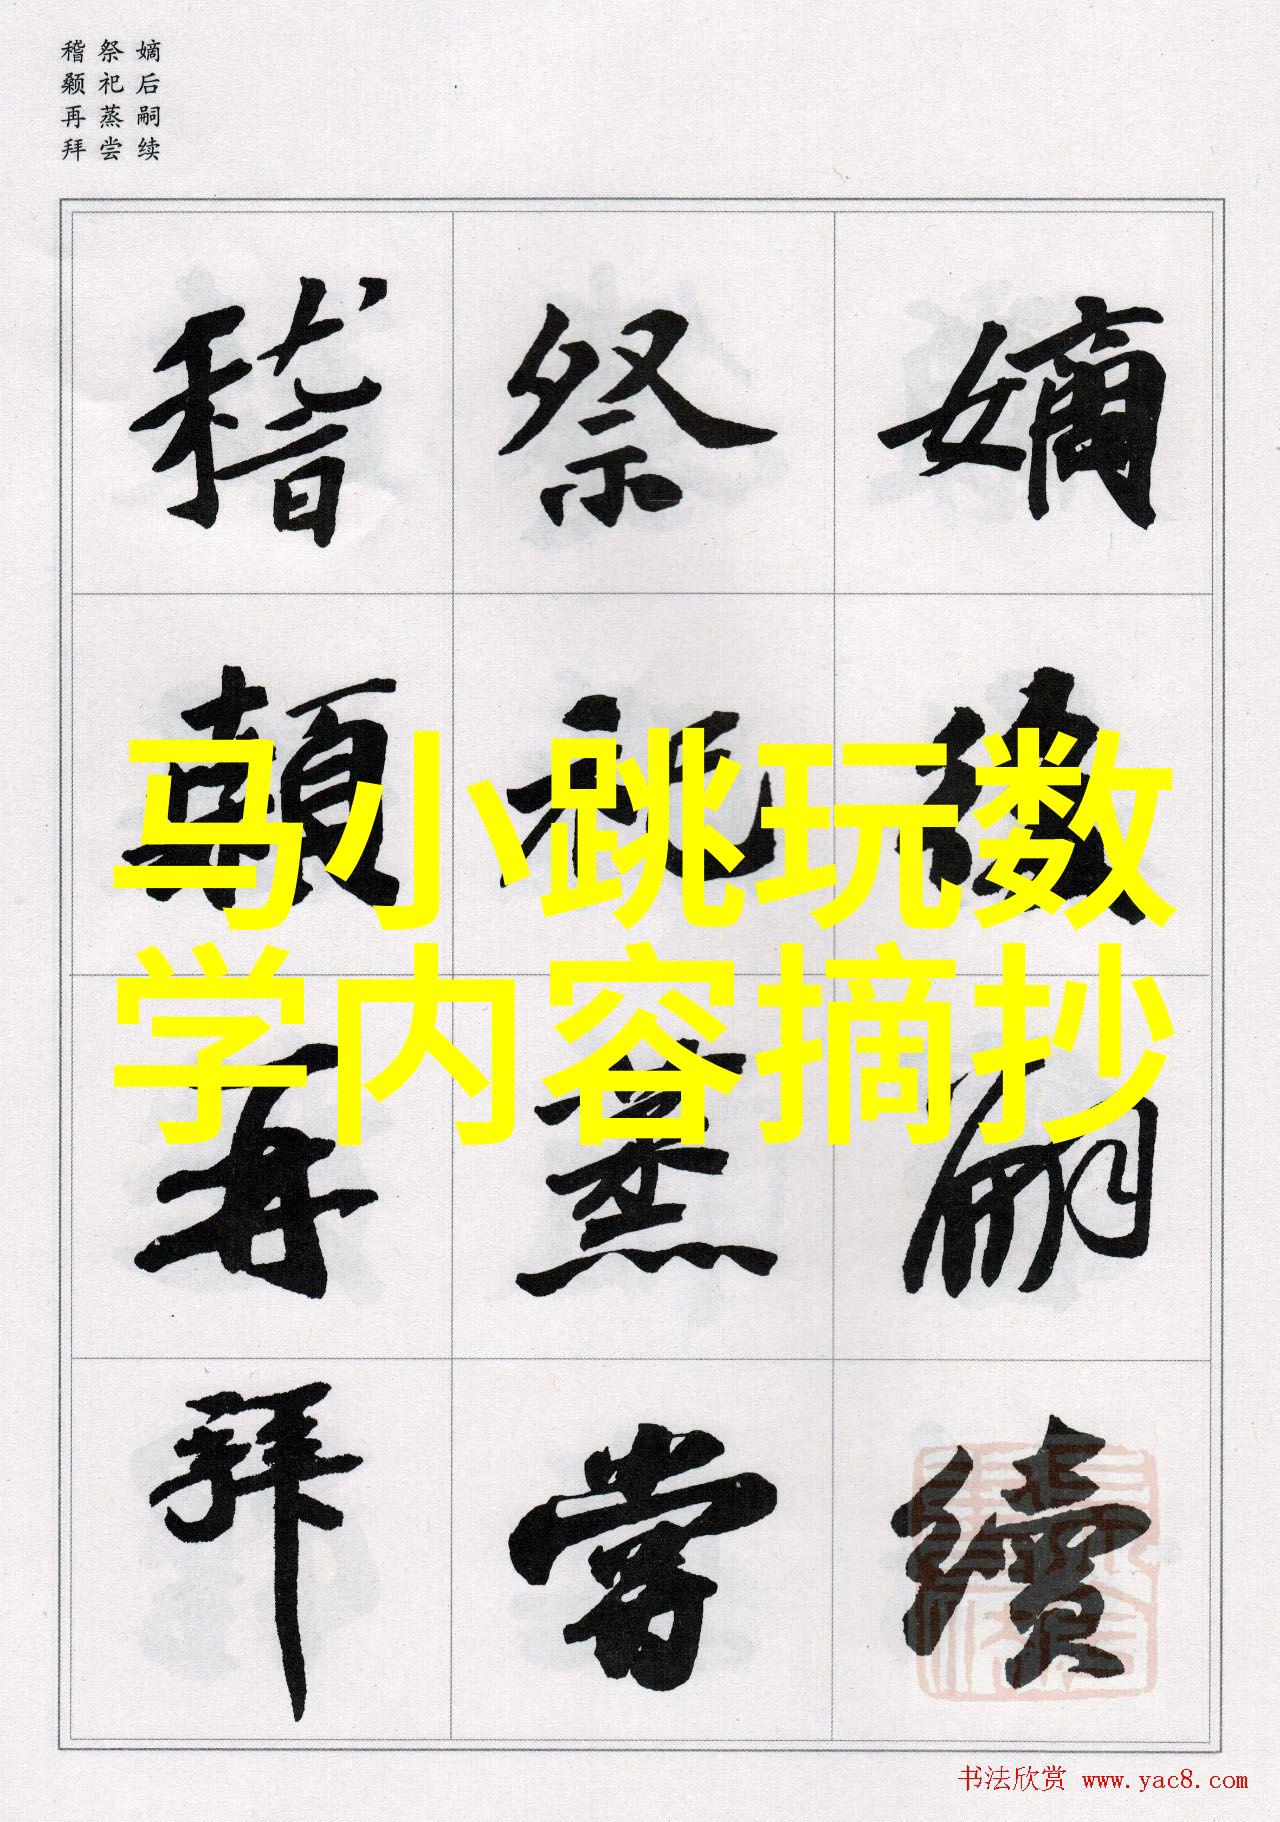 嫡后嗣续
祭祀蒸尝
稽颡再拜
嫡後嗣續
祭祀蒸嘗
稽顙再拜
马小跳玩数
学内容摘抄
书法欣赏 www.yac8.com